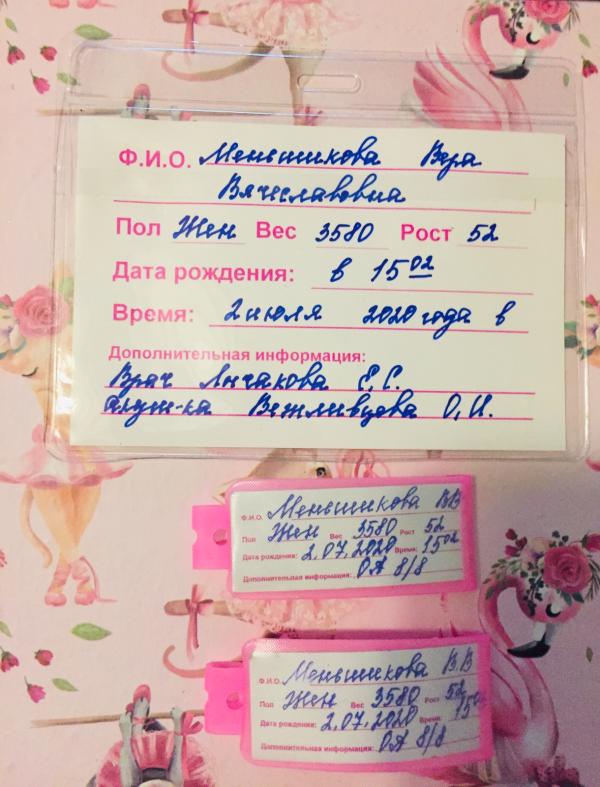 Ф.И.О. Меньшикова Вера
Вячеславовна
Пол Жен Вес 3580 Рост 52
Дата рождения: в 15 02
Время: 2 июля 2020 года в
Дополнительная информация:
Врач Лычакова Е.С.
акуш-ка Вежливцова О.И.
Ф.И.О. Меньшикова В.В
Пол Жен Вес 3580 Рост 52
Дата рождения: 2.07.2020 Время: 15 02
Дополнительная информация: ОА 8/8
Ф.И.О. Меньшикова В.В
Пол Жен Вес 3580 Рост 52
Дата рождения: 2.07.2020 Время: 15 02
Дополнительная информация: ОА 8/8